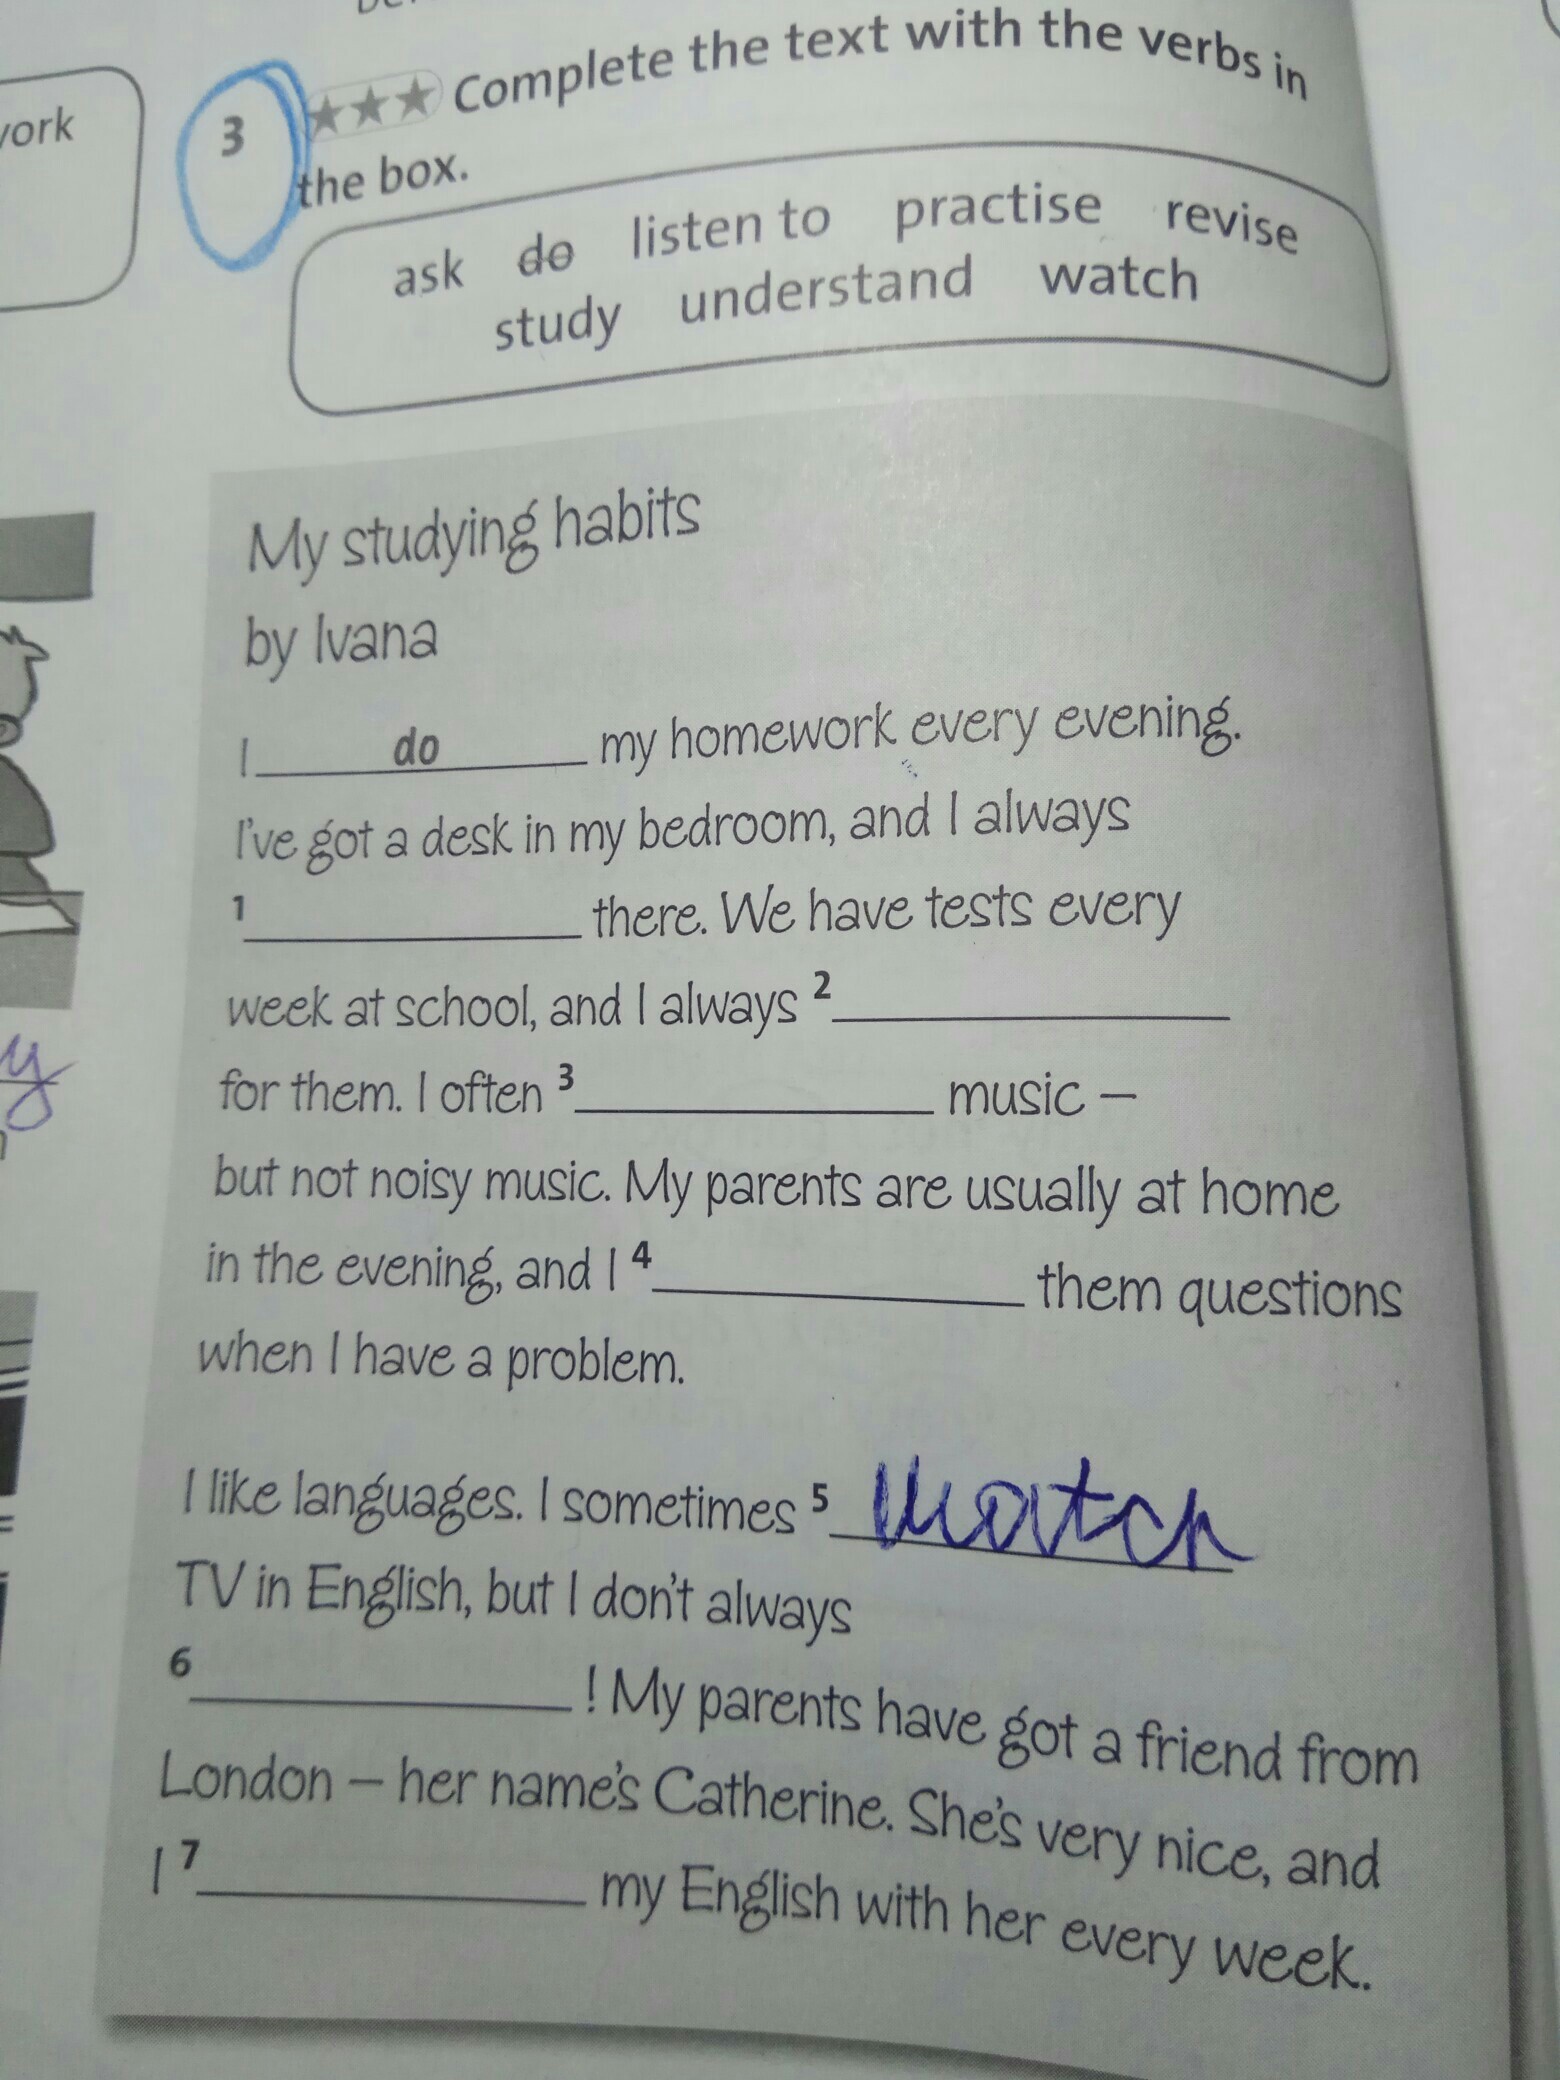 3 ★★★ Complete the text with the verbs in
the box.
ask do listen to practise revise
study understand watch
My studying habits
by Ivana
I do my homework every evening.
I've got a desk in my bedroom, and I always
1 there. We have tests every
week at school, and I always 2
for them. I often 3 music –
but not noisy music. My parents are usually at home
in the evening, and I 4 them questions
when I have a problem.
I like languages. I sometimes 5 watch
TV in English, but I don't always
6 ! My parents have got a friend from
London – her name's Catherine. She's very nice, and
I 7 my English with her every week.